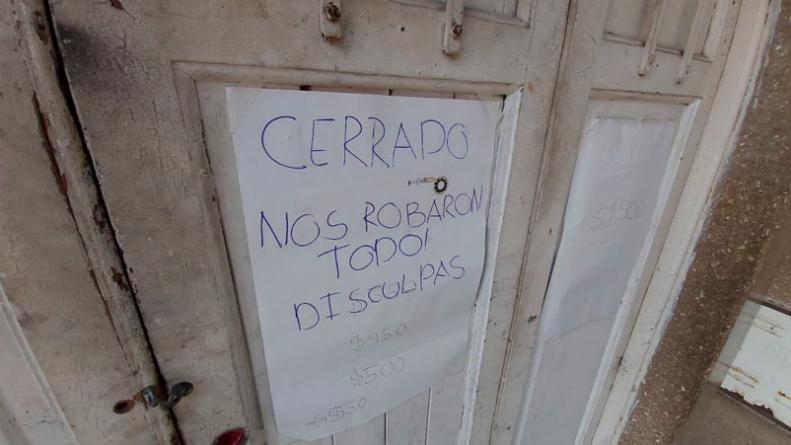 CERRADO
NOS ROBARON
TODO!
DISCOLPAS
$450
$500
+$50
$1500